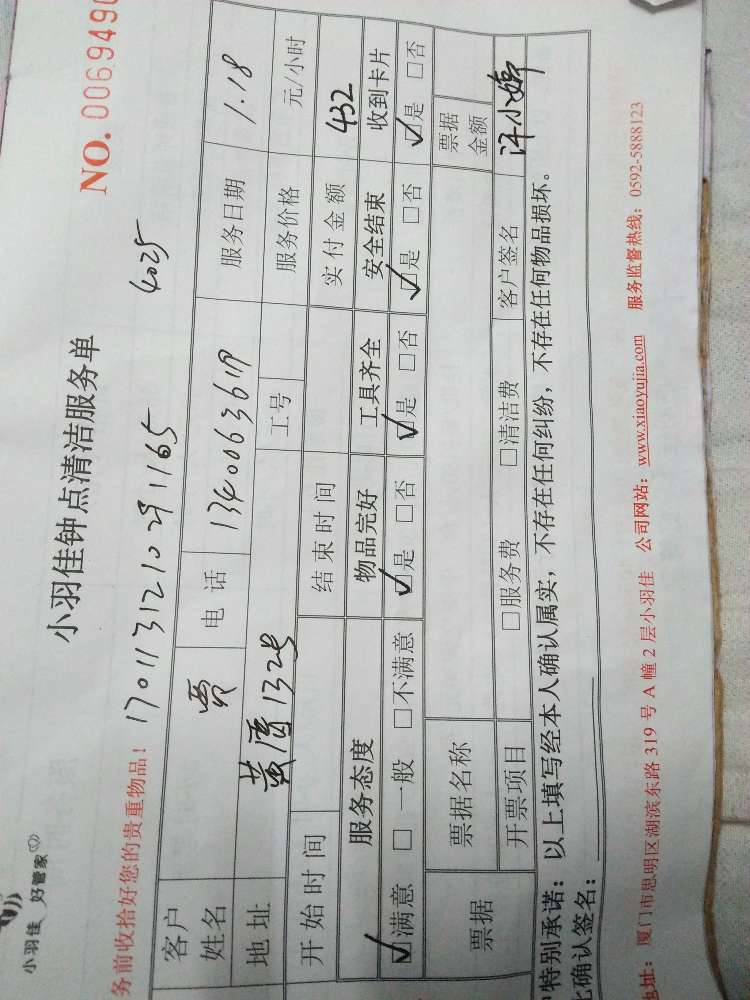 小羽佳 好管家
小羽佳钟点清洁服务单
NO. 0069490
务前收拾好您的贵重物品! 1701131210291165 4025
客户姓名 电话 服务日期 1.18
地址 黄厝132号 工号 服务价格 元/小时
开始时间 结束时间 实付金额 432
服务态度 物品完好 工具齐全 安全结束 收到卡片
☑满意 □一般 □不满意 ☑是 □否 ☑是 □否 ☑是 □否 ☑是 □否
票据 票据名称 票据金额
开票项目 □服务费 □清洁费 客户签名
特别承诺:以上填写经本人确认属实,不存在任何纠纷,不存在任何物品损坏。
确认签名:
地址:厦门市思明区湖滨东路 319 号 A 幢 2 层小羽佳 公司网站:www.xiaoyujia.com 服务监督热线:0592-5888123